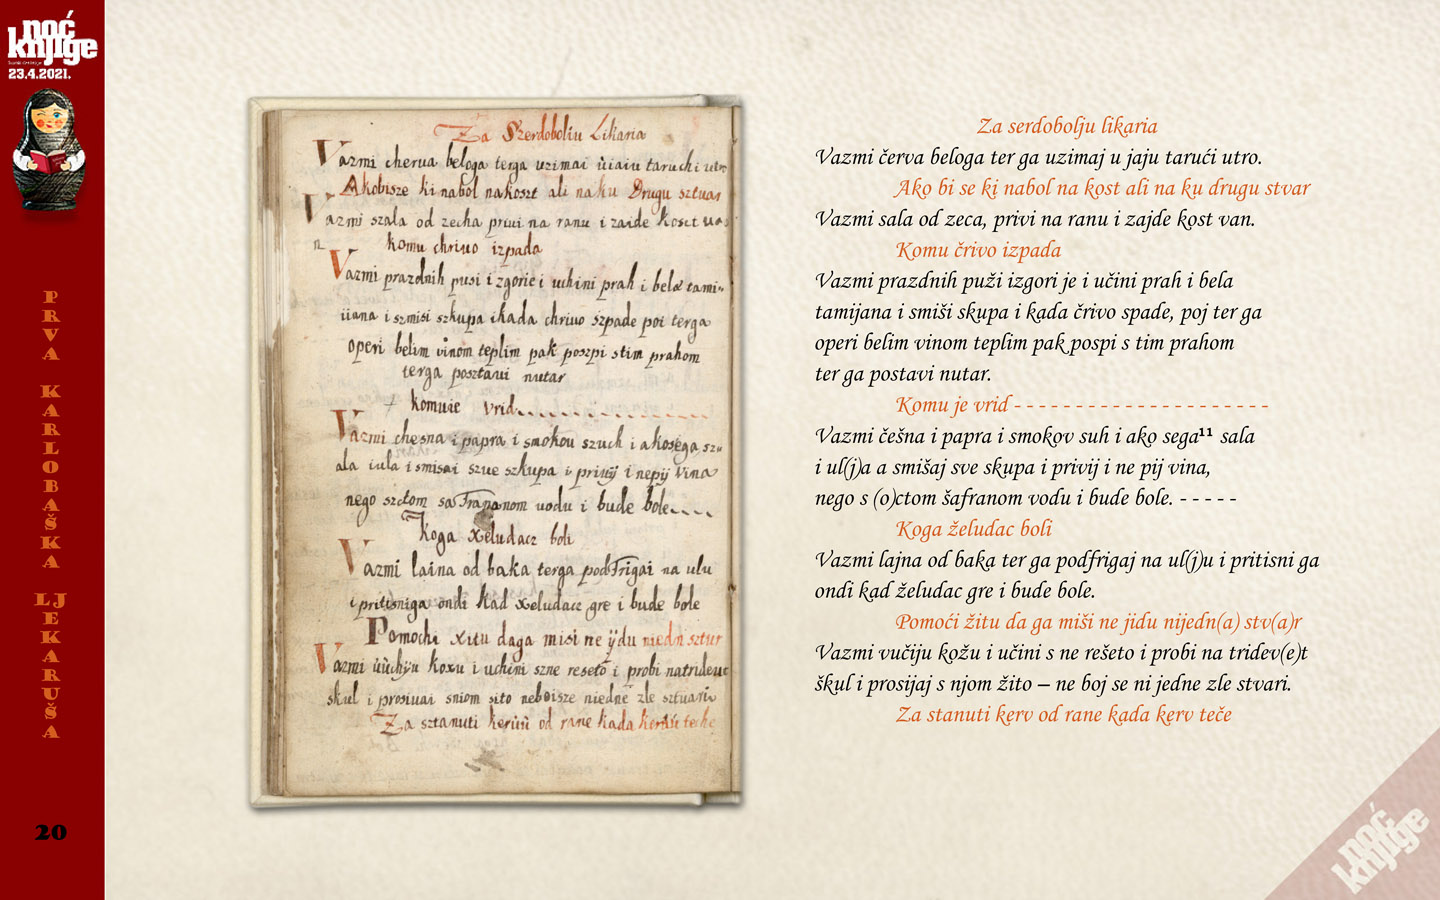 noć
knjige
23.4.2021.
PRVA KARLOBAŠKA LJEKARUŠA
20
Za Szerdoboliu Likaria
Vazmi cherua beloga terga uzimai uiaiu taruchi utro
Akobisze ki nabol nakoszt ali naku Drugu sztuar
Vazmi szala od zecha priui na ranu i zaide koszt ua
n
komu chriuo izpada
Vazmi prazdnih pusi i zgorie i uchini prah i bela tami-
iiana i szmisi szkupa ikada chriuo szpade poi terga
operi belim vinom teplim pak poszpi stim prahom
terga posztaui nutar
komuie vrid
Vazmi chesna i papra i smokou szuch i akosega sza
ala iula i smisai szue szkupa i priuij i nepij vina
nego sz ctom safrananom uodu i bude bole
Koga xeludacz boli
Vazmi laina od baka terga podfrigai na ulu
i pritisniga ondi kad xeludacz gre i bude bole
Pomochi xitu daga misi ne ÿdu niedn sztur
Vazmi uuchiju koxu i uchini szne reseto i probi natrideuet
skul i prosiuai sniom sito neboisze niedne zle sztuari
Za sztanuti keruu od rane kada keruu teche
Za serdobolju likaria
Vazmi červa beloga ter ga uzimaj u jaju tarući utro.
Ako bi se ki nabol na kost ali na ku drugu stvar
Vazmi sala od zeca, privi na ranu i zajde kost van.
Komu črivo izpada
Vazmi prazdnih puži izgori je i učini prah i bela
tamijana i smiši skupa i kada črivo spade, poj ter ga
operi belim vinom teplim pak pospi s tim prahom
ter ga postavi nutar.
Komu je vrid - - - - - - - - - - - - - - - - - - - - -
Vazmi češna i papra i smokov suh i ako sega¹¹ sala
i ul(j)a a smišaj sve skupa i privij i ne pij vina,
nego s (o)ctom šafranom vodu i bude bole. - - - - -
Koga želudac boli
Vazmi lajna od baka ter ga podfrigaj na ul(j)u i pritisni ga
ondi kad želudac gre i bude bole.
Pomoći žitu da ga miši ne jidu nijedn(a) stv(a)r
Vazmi vučiju kožu i učini s ne rešeto i probi na tridev(e)t
škul i prosijaj s njom žito – ne boj se ni jedne zle stvari.
Za stanuti kerv od rane kada kerv teče
noć
knjige